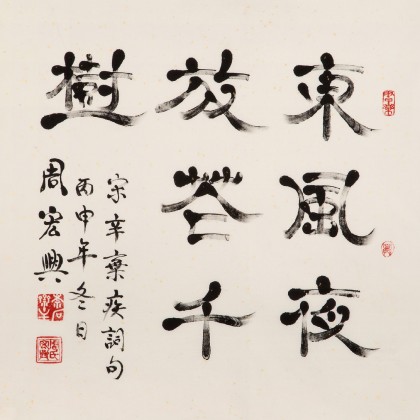 東風夜
放花千
樹
宋辛棄疾詞句
丙申年冬日
周宏興